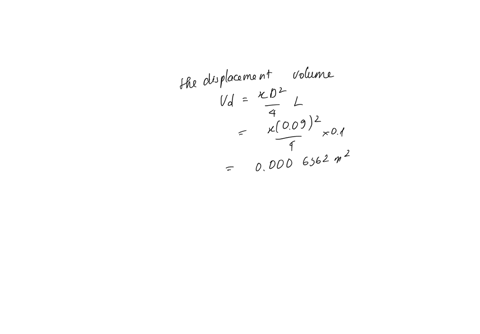 the displacement volume
Vd = πD²/4 L
= π(0.09)²/4 × 0.1
= 0.000 6362 m²